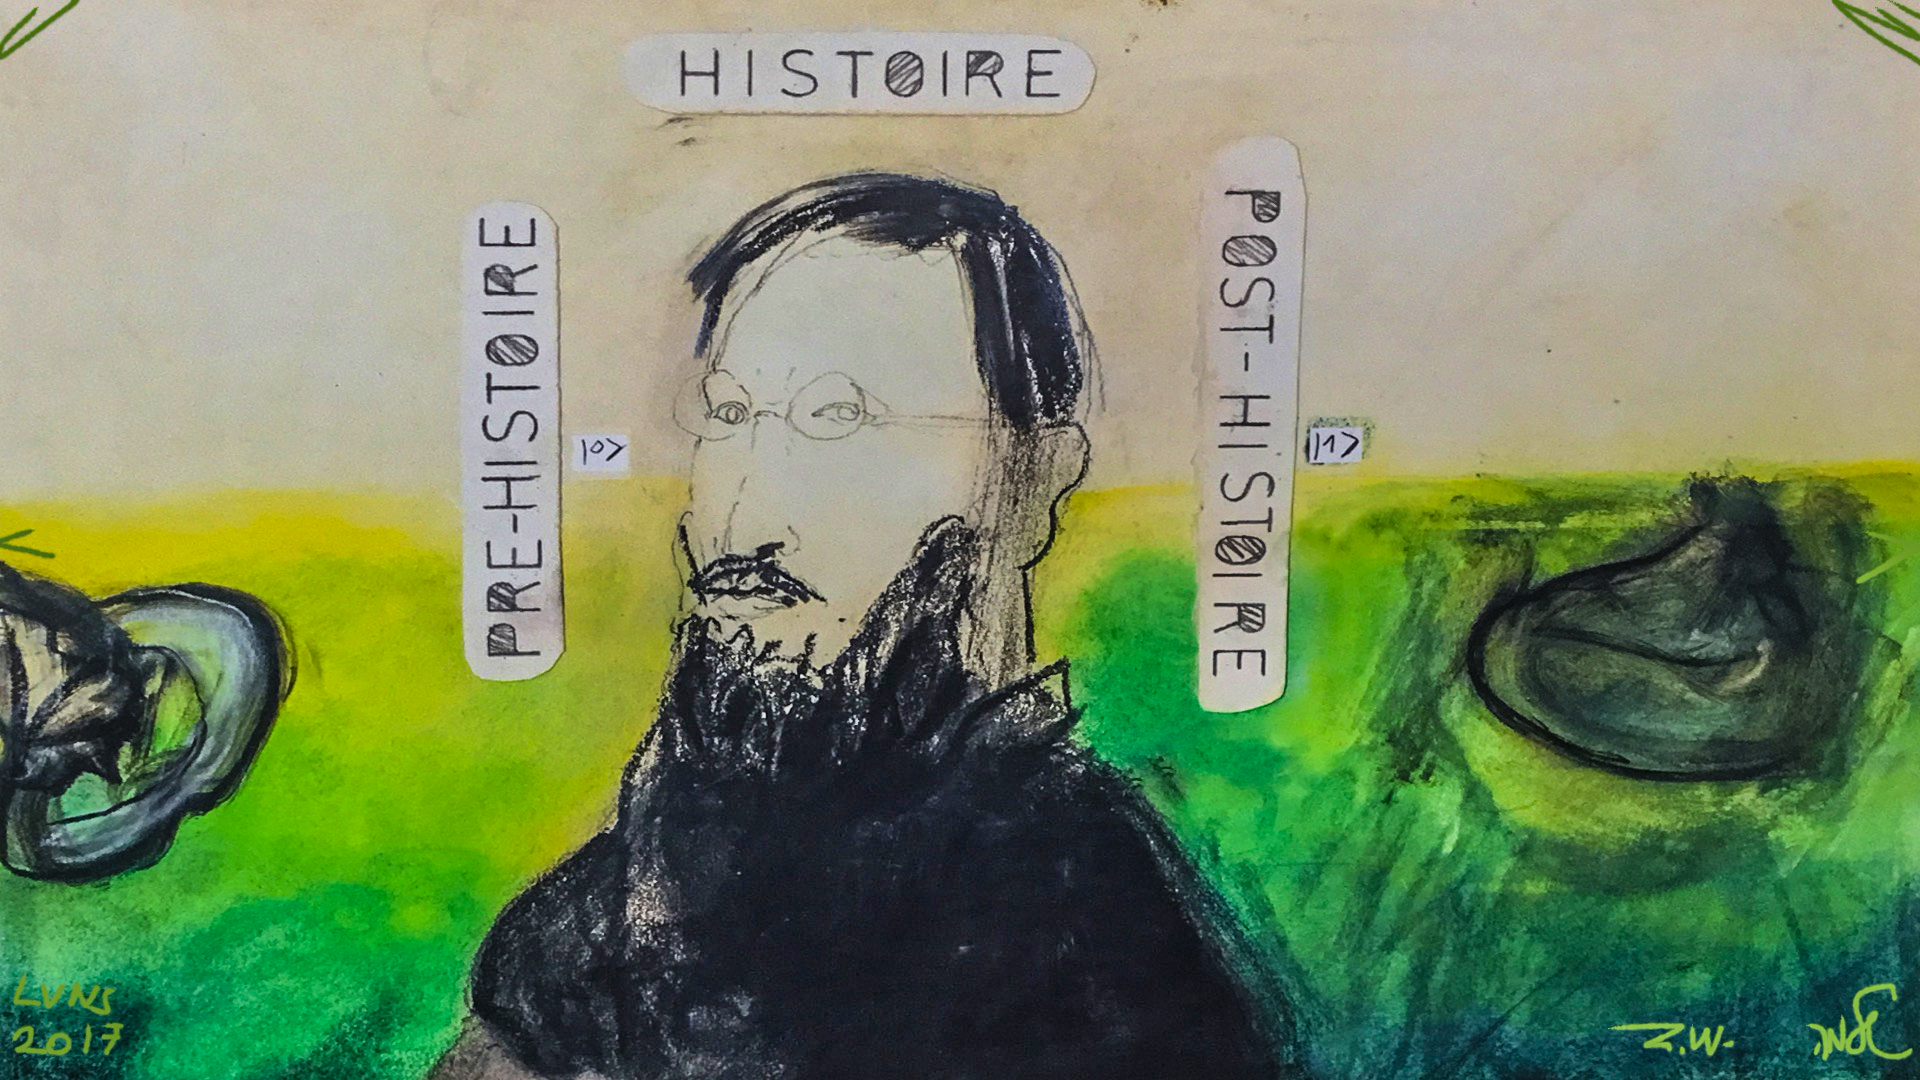 HISTOIRE
PRE-HISTOIRE
POST-HISTOIRE
|0>
|1>
LVNS
2017
Z.W.